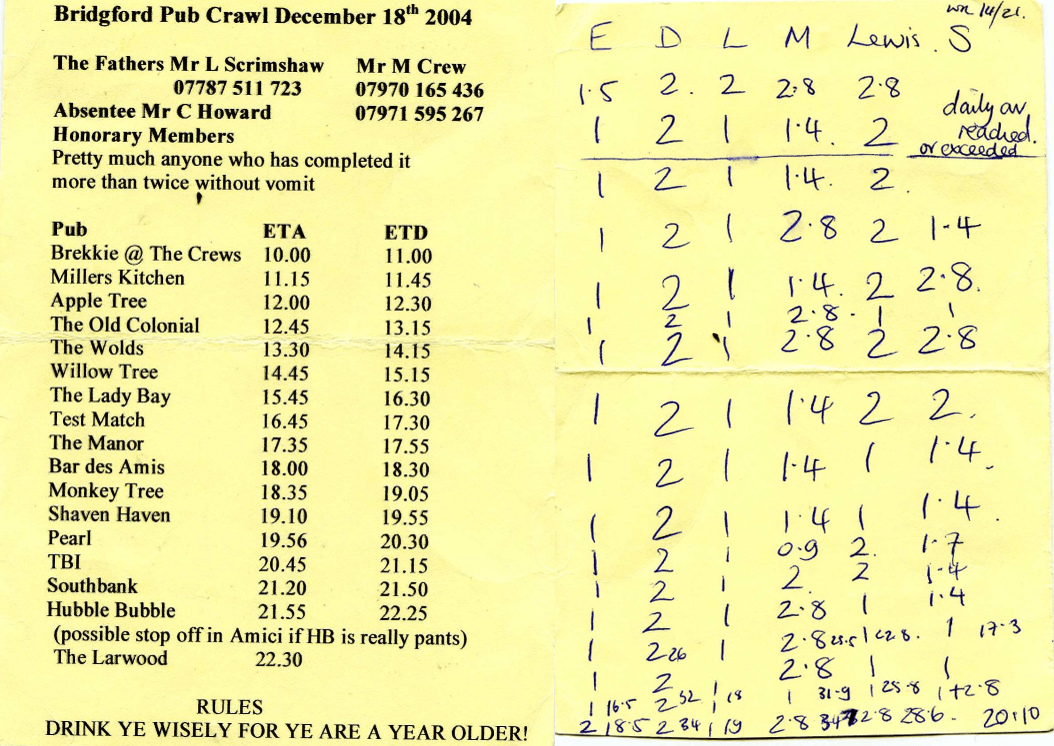 Bridgford Pub Crawl December 18th 2004
The Fathers Mr L Scrimshaw Mr M Crew
07787 511 723 07970 165 436
Absentee Mr C Howard 07971 595 267
Honorary Members
Pretty much anyone who has completed it
more than twice without vomit
Pub ETA ETD
Brekkie @ The Crews 10.00 11.00
Millers Kitchen 11.15 11.45
Apple Tree 12.00 12.30
The Old Colonial 12.45 13.15
The Wolds 13.30 14.15
Willow Tree 14.45 15.15
The Lady Bay 15.45 16.30
Test Match 16.45 17.30
The Manor 17.35 17.55
Bar des Amis 18.00 18.30
Monkey Tree 18.35 19.05
Shaven Haven 19.10 19.55
Pearl 19.56 20.30
TBI 20.45 21.15
Southbank 21.20 21.50
Hubble Bubble 21.55 22.25
(possible stop off in Amici if HB is really pants)
The Larwood 22.30
RULES
DRINK YE WISELY FOR YE ARE A YEAR OLDER!
14/21.
E D L M Lewis. S
1.5 2. 2 2.8 2.8
daily av
1 2 1 1.4. 2 reached.
or exceeded
1 2 1 1.4. 2.
1 2 1 2.8 2 1.4
1 2 1 1.4. 2 2.8.
1 2 1 2.8. 1 1
1 2 1 2.8 2 2.8
1 2 1 1.4 2 2.
1 2 1 1.4 1 1.4.
1 2 1 1.4 1 1.4.
1 2 1 0.9 2. 1.7
1 2 1 2 2 1.4
1 2 1 2.8 1 1.4
1 2 26 1 2.8 1 22.8. 1 17.3
1 2 2.8 1 1
1 16.5 2 32 1 18 1 31.9 1 25.8 1 + 2.8
2 18.5 2 34 1 19 2.8 2.8 28.6. 20.10